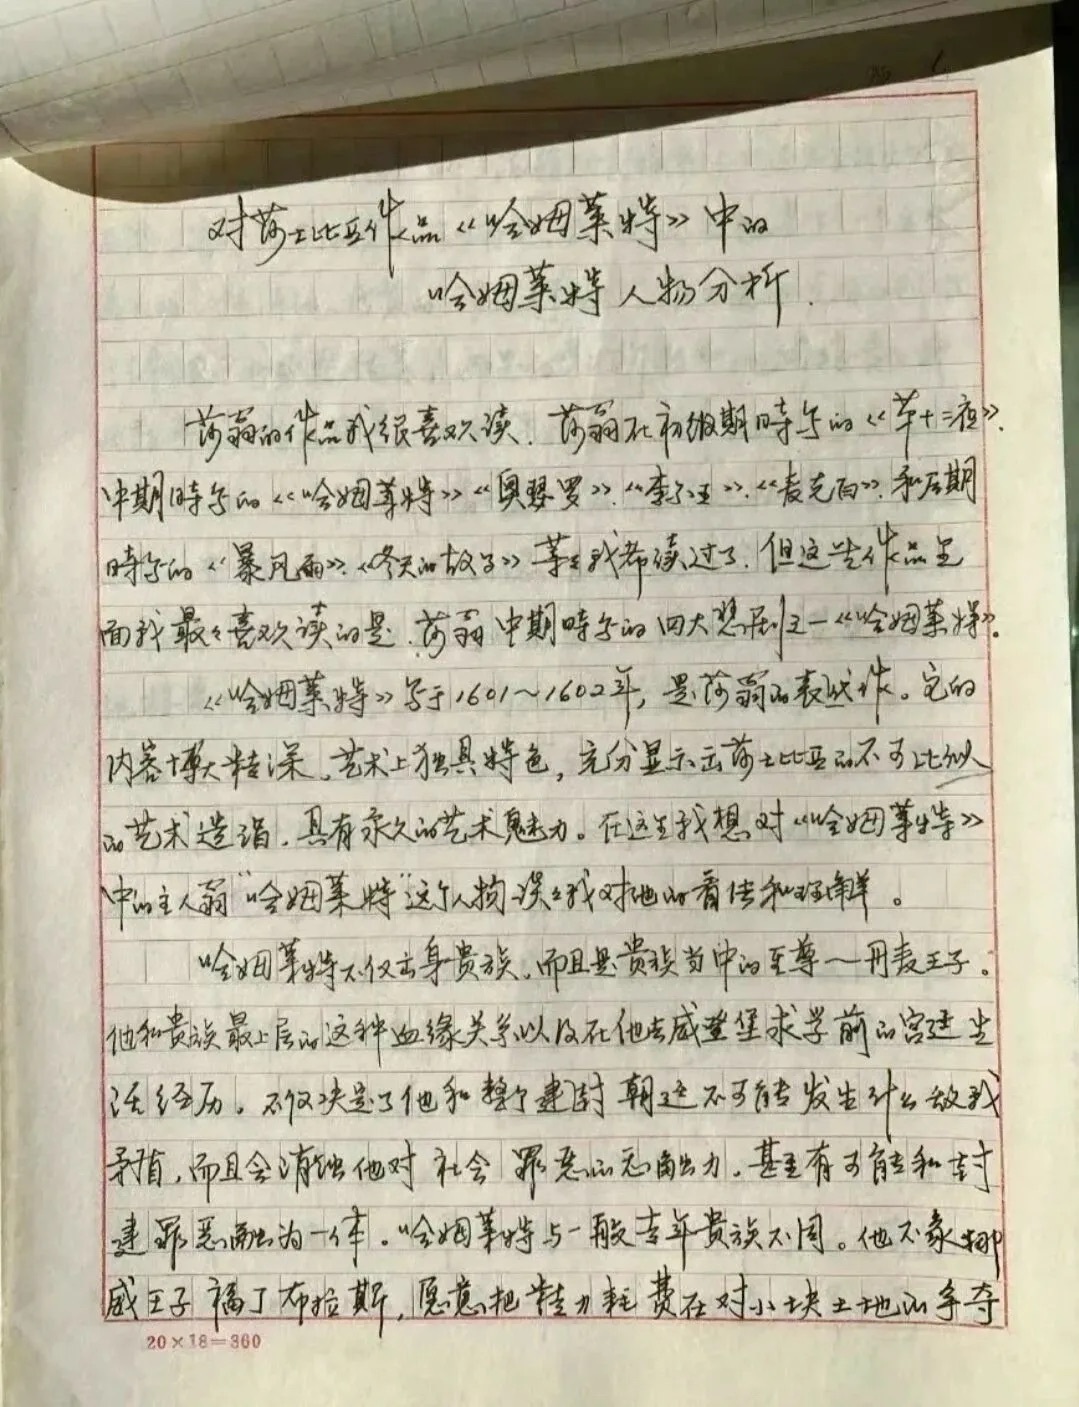 对莎士比亚作品《哈姆莱特》中的
哈姆莱特人物分析.
莎翁的作品我很喜欢读.莎翁在初级期時写的《第十二夜》.
中期時写的《哈姆莱特》《奥瑟罗》.《李尔王》.《麦克白》.和后期
時写的《暴风雨》.《冬天的故事》等等我都读过了.但这些作品里
面我最最喜欢读的是.莎翁中期時写的四大悲剧之一《哈姆莱特》.
《哈姆莱特》写于1601~1602年,是莎翁的代表作。它的
内容博大精深.艺术上独具特色,充分显示出莎士比亚的不可比拟
的艺术造诣.具有永久的艺术魅力。在这里我想对《哈姆莱特》
中的主人翁“哈姆莱特”这个人物谈谈我对他的看法和理解。
哈姆莱特不仅出身贵族.而且是贵族当中的至尊—丹麦王子。
他和贵族最上层的这种血缘关系以及在他去威登堡求学前的宫廷生
活经历。不仅决定了他和整个建封朝廷不可能发生什么敌我
矛盾,而且会消蚀他对社会罪恶的 力.甚至有可能和封
建罪恶融为一体。哈姆莱特与一般青年贵族不同。他不象挪
威王子福丁布拉斯,愿意把精力耗费在对小块土地的争夺
20×18=360